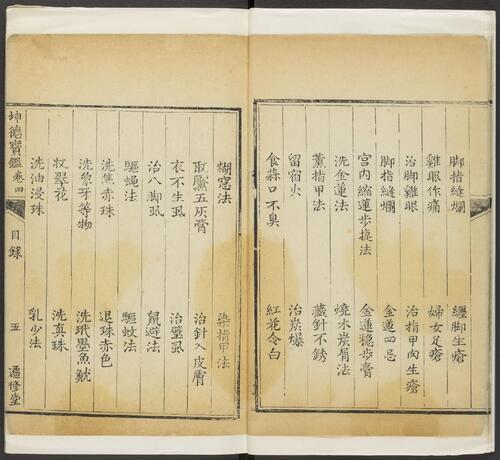 脚指縫爛　纒脚生瘡
雞眼作痛　婦女足瘡
治脚雞眼　治指甲內生瘡
脚指縫爛　金蓮四忌
宫内縮蓮步捷法　金蓮穩步膏
洗金蓮法　燒木炭屑法
薰指甲法　藏針不銹
留宿火　治炭爆
食蒜口不臭　紅花令白
糊窓法　染指甲法
取黶五灰膏　治針入皮膚
衣不生虱　治壁虱
治八脚虱　鼠避法
驅蝇法　驅蚊法
洗焦赤珠　退珠赤色
洗象牙等物　洗玳墨魚魷
收翠花　洗真珠
洗油浸珠　乳少法
坤德寶鑑　卷四　目錄　五　適修堂